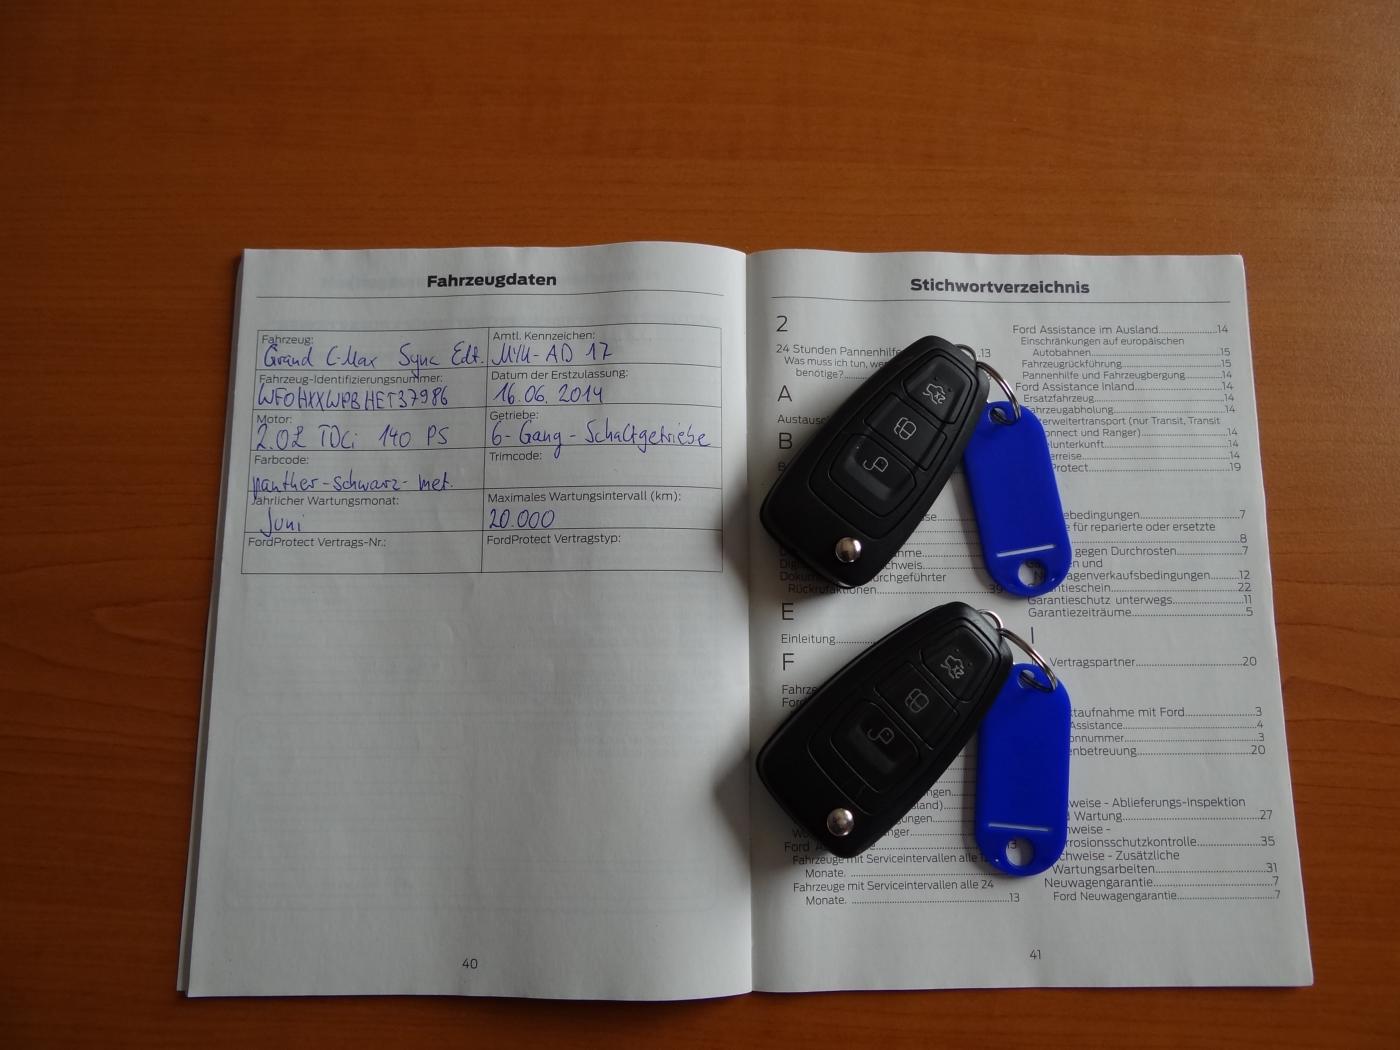 Fahrzeugdaten
Fahrzeug:
Grand C-Max Sync Edt.
Amtl. Kennzeichen:
AD 17
Fahrzeug-Identifizierungsnummer:
Datum der Erstzulassung:
16.06.2014
Motor:
2.0l TDCi 140 PS
Getriebe:
6-Gang-Schaltgetriebe
Farbcode:
panther-schwarz-met.
Trimcode:
Jährlicher Wartungsmonat:
Juni
Maximales Wartungsintervall (km):
20.000
FordProtect Vertrags-Nr.:
FordProtect Vertragstyp:
40
Stichwortverzeichnis
2
24 Stunden Pannenhilfe
.13
Was muss ich tun, we
benötige?
A
Austausc
B
se
hme
chweis
Dokum
urchgeführter
Rückrufaktionen 39
E
Einleitung
F
Fahrz
For
ngen
sland)
gungen
nger
Ford A 13
Fahrzeuge mit Serviceintervallen alle 1
Monate.
Fahrzeuge mit Serviceintervallen alle 24
Monate. 13
Ford Assistance im Ausland 14
Einschränkungen auf europäischen
Autobahnen 15
Fahrzeugrückführung 15
Pannenhilfe und Fahrzeugbergung 14
Ford Assistance Inland 14
Ersatzfahrzeug 14
Fahrzeugabholung 14
terweitertransport (nur Transit, Transit
onnect und Ranger) 14
lunterkunft 14
erreise 14
Protect 19
ebedingungen 7
e für reparierte oder ersetzte
8
gegen Durchrosten 7
en und
agenverkaufsbedingungen 12
ntieschein 22
Garantieschutz unterwegs 11
Garantiezeiträume 5
I
Vertragspartner 20
ktaufnahme mit Ford 3
Assistance 4
onnummer 3
enbetreuung 20
weise - Ablieferungs-Inspektion
d Wartung 27
hweise -
rrosionsschutzkontrolle 35
chweise - Zusätzliche
Wartungsarbeiten 31
Neuwagengarantie 7
Ford Neuwagengarantie 7
41